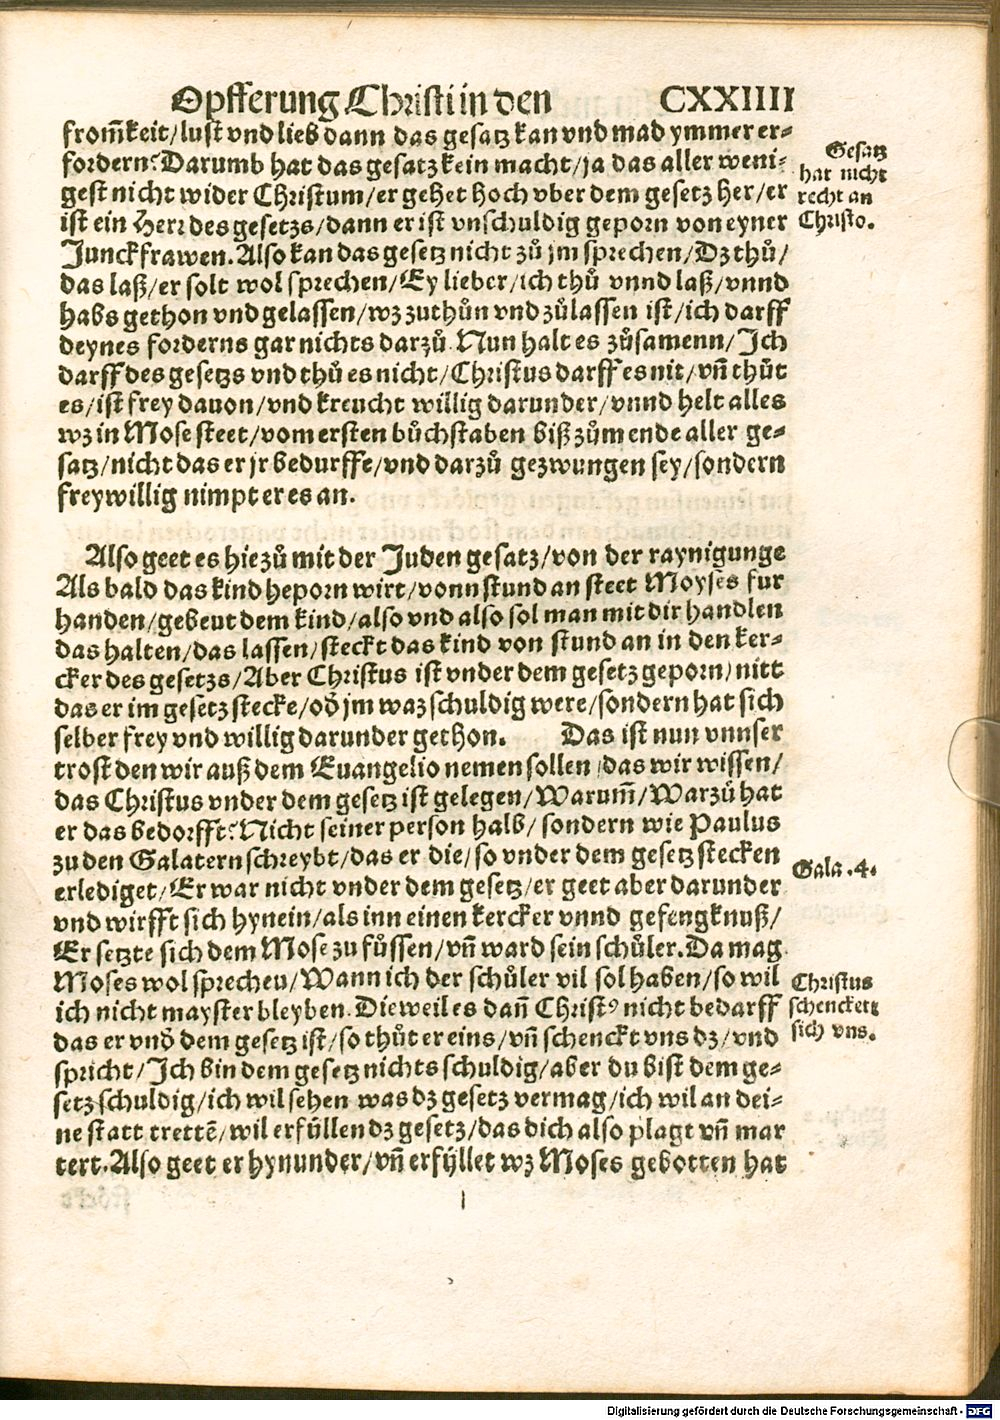 Opfferung Christi in den CXXIIII
from̃keit/lust vnd lieb dann das gesatz kan vnd mad ymmer er-
fordern? Darumb hat das gesatz kein macht/ja das aller weni-
gest nicht wider Christum/er gehet hoch vber dem gesetz her/er
ist ein Herr des gesetzs/dann er ist vnschuldig geporn von eyner
Junckfrawen. Also kan das gesetz nicht zů jm sprechen/Dz thů/
das laß/er solt wol sprechen/Ey lieber/ich thů vnnd laß/vnnd
habs gethon vnd gelassen/wz zuthůn vnd zůlassen ist/ich darff
deynes forderns gar nichts darzů. Nun halt es zůsamenn/Ich
darff des gesetzs vnd thů es nicht/Christus darff es nit/vñ thůt
es/ist frey dauon/vnd kreucht willig darunder/vnnd helt alles
wz in Mose steet/vom ersten bůchstaben biß zům ende aller ge-
satz/nicht das er jr bedurffe/vnd darzů gezwungen sey/sondern
freywillig nimpt er es an.
Gesatz
hat nicht
recht an
Christo.
Also geet es hie zů mit der Juden gesatz/von der raynigunge
Als bald das kind heporn wirt/vonn stund an steet Moyses fur
handen/gebeut dem kind/also vnd also sol man mit dir handlen
das halten/das lassen/steckt das kind von stund an in den ker-
cker des gesetzs/Aber Christus ist vnder dem gesetz geporn/nitt
das er im gesetz stecke/oď jm waz schuldig were/sondern hat sich
selber frey vnd willig darunder gethon. Das ist nun vnnser
trost den wir auß dem Euangelio nemen sollen/das wir wissen/
das Christus vnder dem gesetz ist gelegen/Warum̃/Warzů hat
er das bedorfft? Nicht seiner person halb/sondern wie Paulus
zu den Galatern schreybt/das er die/so vnder dem gesetz stecken
erlediget/Er war nicht vnder dem gesetz/er geet aber darunder
vnd wirfft sich hynein/als inn einen kercker vnnd gefengknuß/
Er setzte sich dem Mose zu fůssen/vñ ward sein schůler. Da mag
Moses wol sprechen/Wann ich der schůler vil sol haben/so wil
ich nicht mayster bleyben. Die weil es dañ Christꝰ nicht bedarff
das er vnď dem gesetz ist/so thůt er eins/vñ schenckt vns dz/vnd
spricht/Ich bin dem gesetz nichts schuldig/aber du bist dem ge-
setz schuldig/ich wil sehen was dz gesetz vermag/ich wil an dei-
ne statt trettẽ/wil erfüllen dz gesetz/das dich also plagt vñ mar
tert. Also geet er hynunder/vñ erfyllet wz Moses gebotten hat
Gala .4.
Christus
schencket
sich vns.
Digitalisierung gefördert durch die Deutsche Forschungsgemeinschaft - DFG